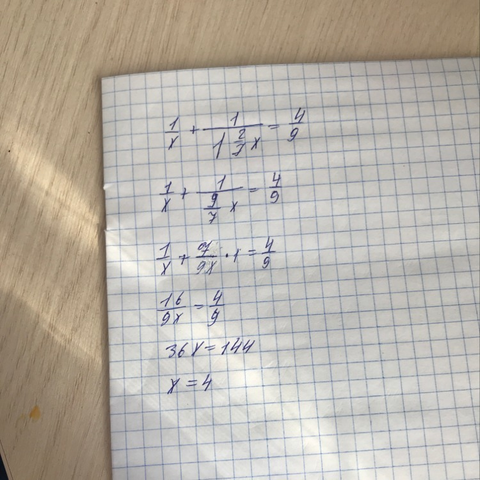 1/x + 1/(1 2/7 x) = 4/9
1/x + 1/(9/7 x) = 4/9
1/x + 7/9x · 1 = 4/9
16/9x = 4/9
36x = 144
x = 4